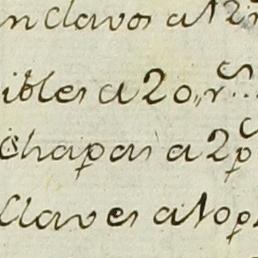 n Clavos a 12 r
ibles a 20,, r.s..
Chapas a 2 p
Claves a 10 p